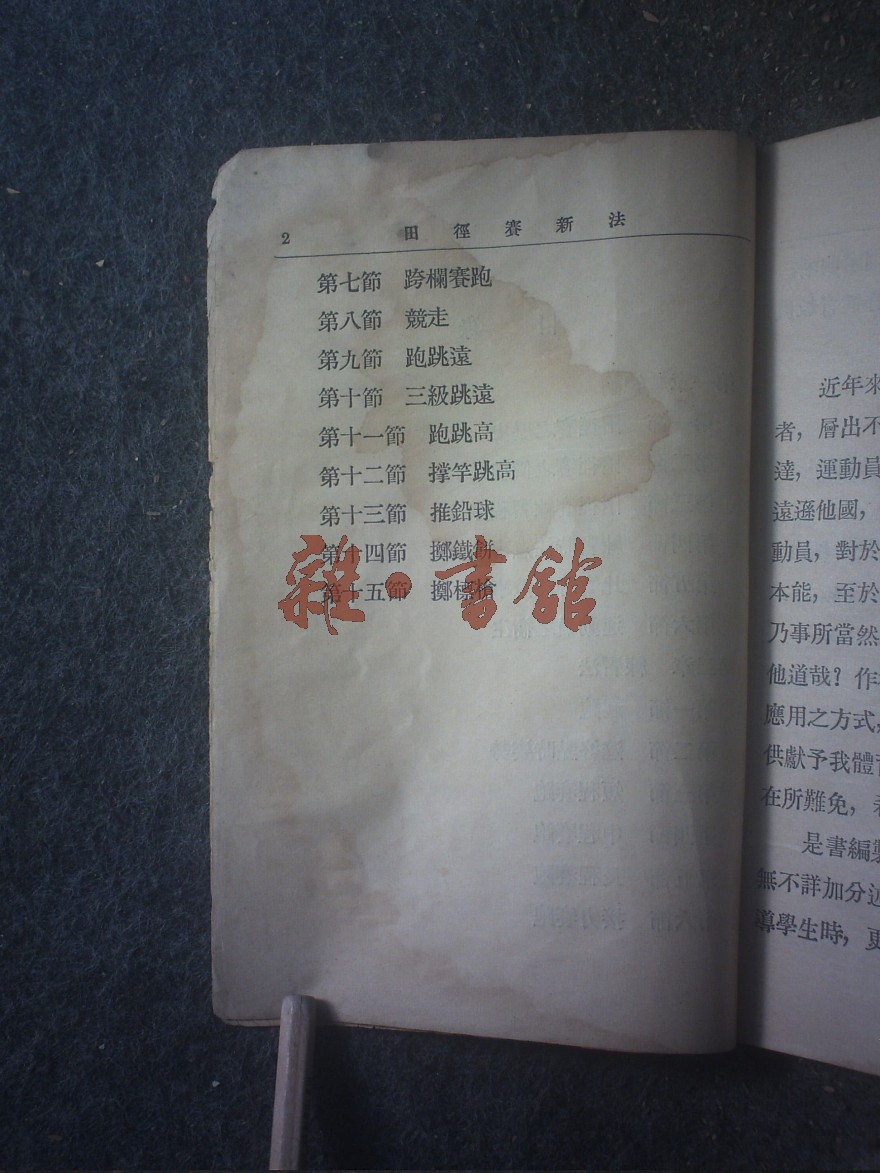 2 田徑賽新法
第七節 跨欄賽跑
第八節 競走
第九節 跑跳遠
第十節 三級跳遠
第十一節 跑跳高
第十二節 撐竿跳高
第十三節 推鉛球
第十四節 擲鐵餅
第十五節 擲標槍
雜·書館
近年來
者，層出不
達，運動員
遠遜他國，
動員，對於
本能，至於
乃事所當然
他道哉？作
應用之方式，
供獻予我體
在所難免，
是書編
無不詳加分
導學生時，更